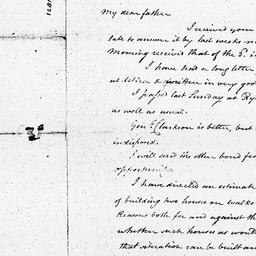 My dear father
I received your
late to answer it by last weeks m
Morning received that of the 5. i
I have had a long letter
written in very goo
I passed last Sunday at Ry
as well as usual.
Gen.l Clarkson is better, but
indisposed.
I will send the other bond fro
opportunities
I have directed an estimate
of building two houses on
Reasons both for and against th
whether such houses as woul
that situation can be built an